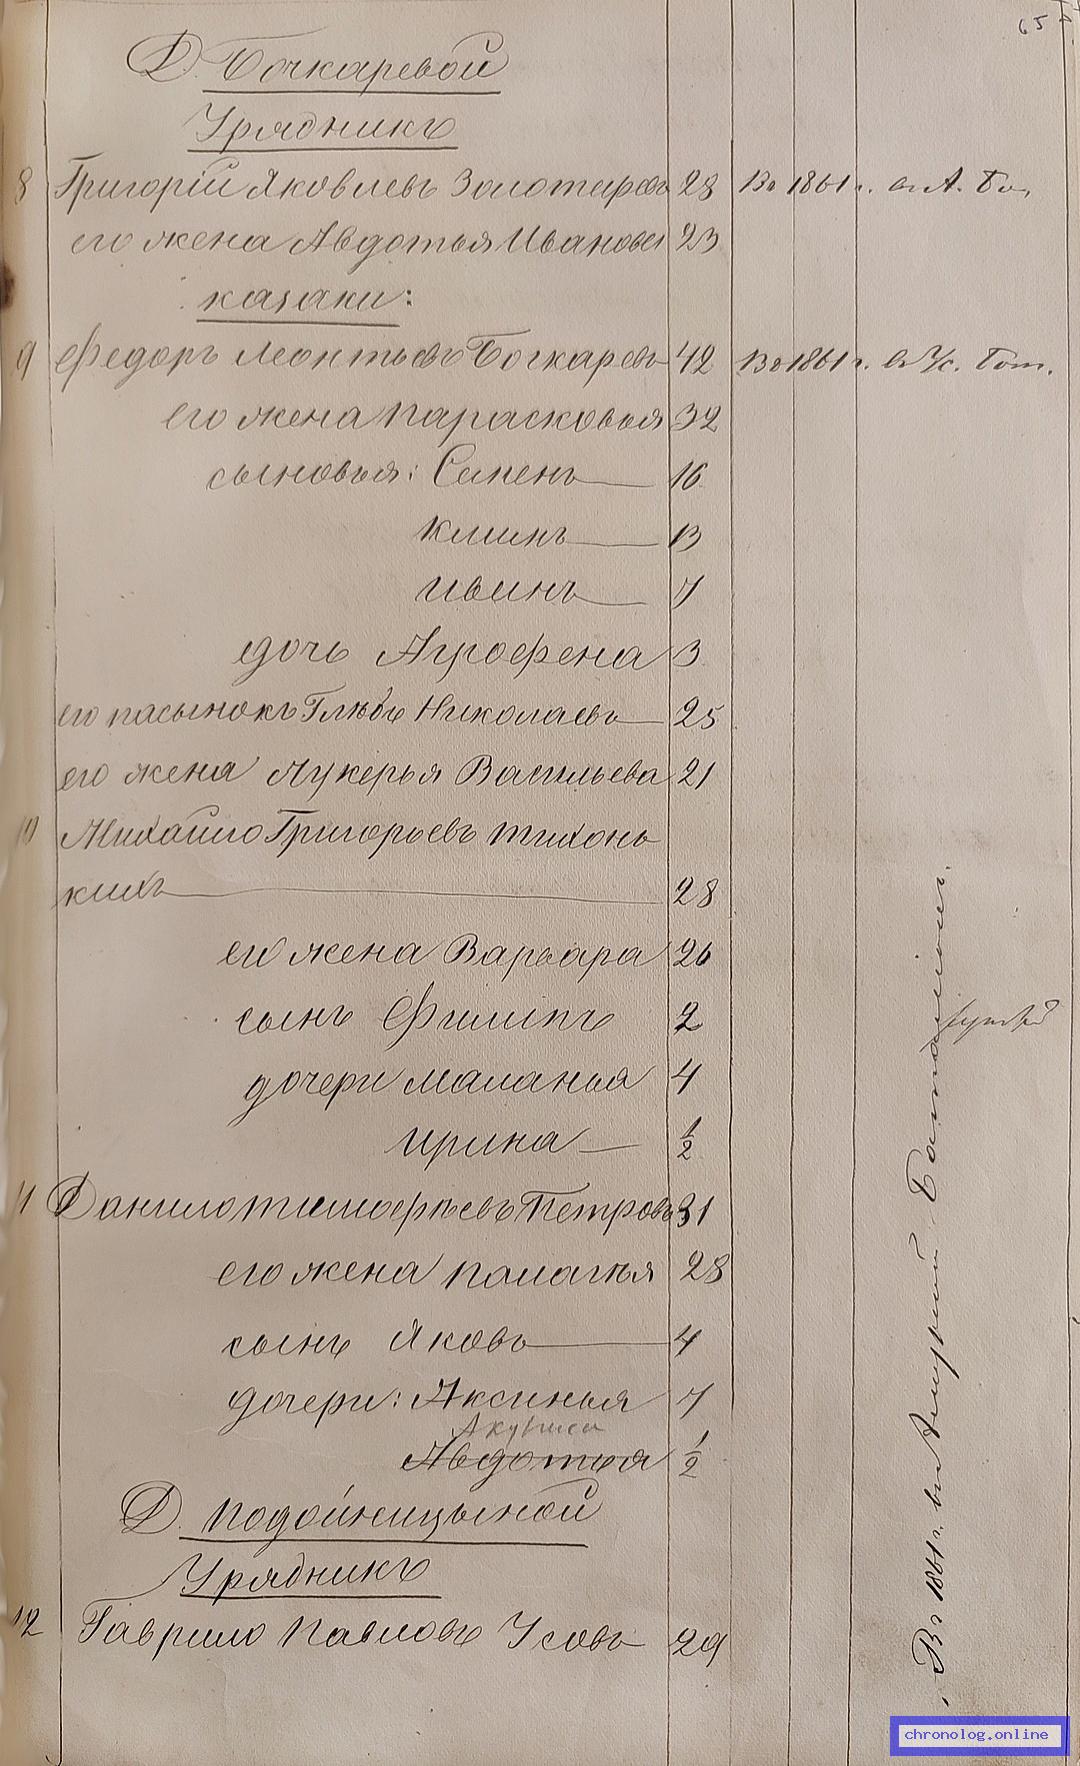 65
Д. Бочкаревой
Урядникъ
8 Григорій Яковлевъ Золотаревъ 28 Въ 1861 г. въ А. Ба.
его жена Авдотья Иванова 23
казаки:
9 Федоръ Леонтьевъ Бочкаревъ 42 Въ 1861 г. въ Ус. Бат.
его жена Парасковья 32
сыновья: Семенъ 16
Климъ 13
Иванъ 7
дочь Агрофена 3
его пасынокъ Глѣбъ Николаевъ 25
его жена Лукерья Васильева 21
10 Михайло Григорьевъ Тихонь
кихъ 28
его жена Варвара 26
сынъ Филипъ 2
дочери Маланья 4
Ирина 1/2
11 Данило Тимофѣевъ Петровъ 31
его жена Палагѣя 28
сынъ Яковъ 4
дочери: Аксинья 7
Акулина
Авдотья 1/2
Д. Подойницыной
Урядникъ
12 Гаврило Павловъ Усовъ 29
Въ 1861 г. въ Амурский Баталіон.
chronolog.online